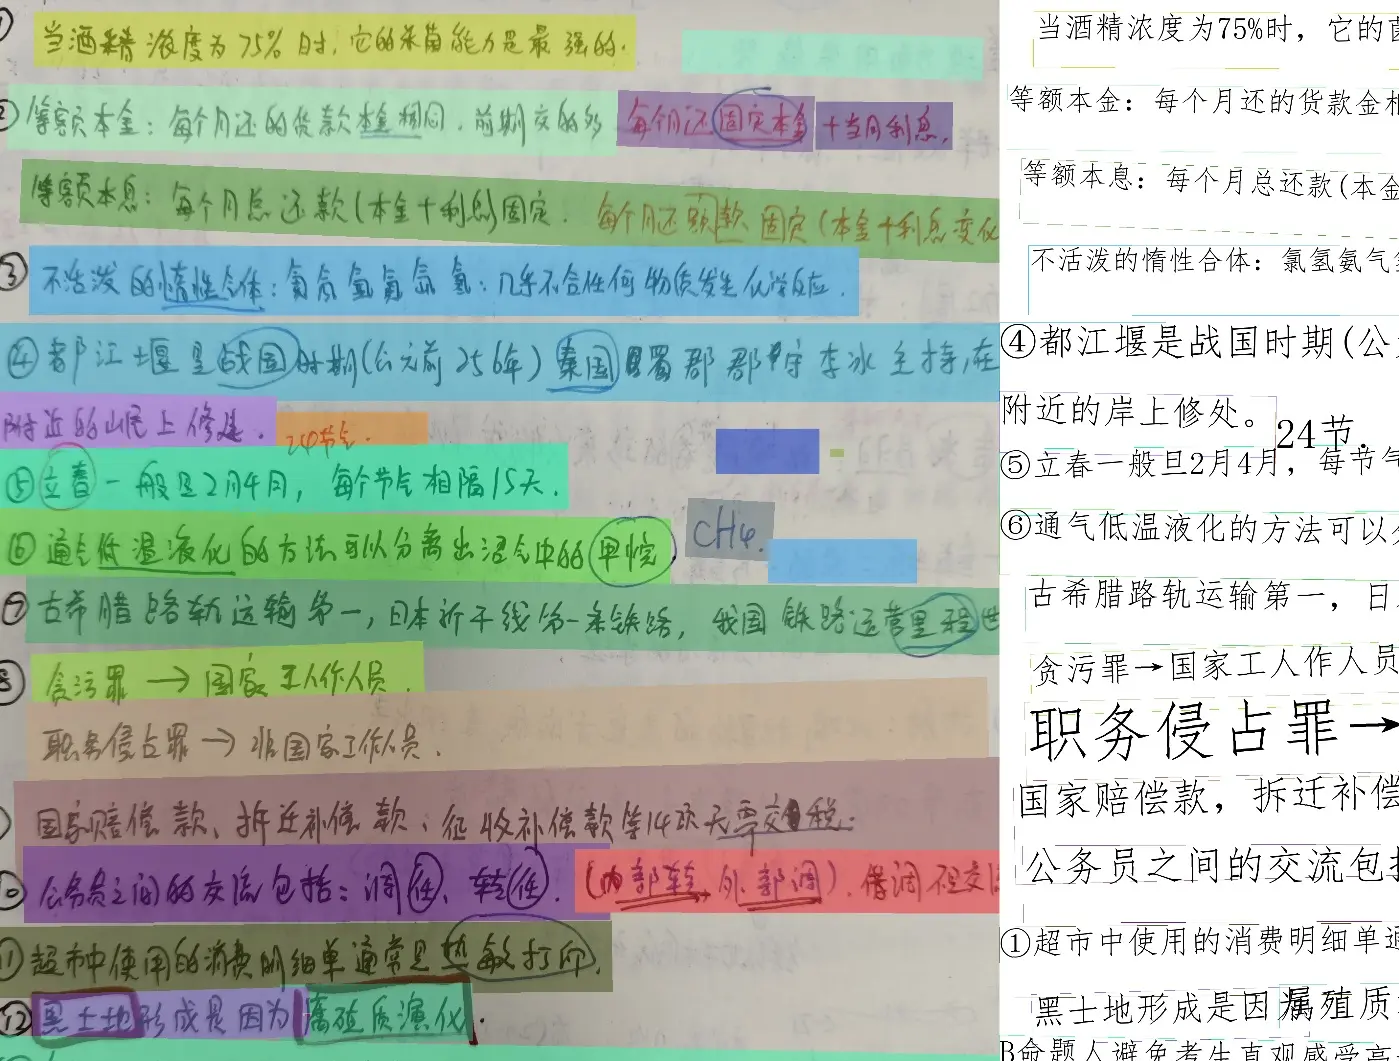 ① 当酒精浓度为75%时,它的杀菌能力是最强的.
② 等额本金:每个月还的货款本金相同.前期交的多 每个月还固定本金+当月利息.
等额本息:每个月总还款(本金+利息)固定. 每个月还款固定(本金+利息变化
③ 不活泼的惰性合体:氦氖氩氪氙氡:几乎不合任何物质发生化学反应.
④ 都江堰是战国时期(公元前256年)秦国蜀郡郡守李冰主持,在
附近的岷上修建.
24节气.
⑤ 立春一般是2月4月,每个节气相隔15天.
⑥ 通气低温液化的方法可以分离出沼气中的甲烷. CH4.
⑦ 古希腊路轨运输第一,日本新干线第一条铁路,我国铁路运营里程世
⑧ 贪污罪→国家工人作人员.
职务侵占罪→非国家工作人员.
国家赔偿款、拆迁补偿款、征收补偿款等14项无需交税.
⑩ 公务员之间的交流包括:调任、转任.(内部转,外部调).借调不是交流
⑪ 超市中使用的消费明细单通常是热敏打印.
⑫ 黑土地形成是因为腐殖质演化.
当酒精浓度为75%时,它的菌
等额本金:每个月还的货款金相
等额本息:每个月总还款(本金
不活泼的惰性合体:氯氢氨气氢
④都江堰是战国时期(公
附近的岸上修处。
24节.
⑤立春一般旦2月4月,每节气
⑥通气低温液化的方法可以分
古希腊路轨运输第一,日
贪污罪→国家工人作人员
职务侵占罪→
国家赔偿款,拆迁补偿
公务员之间的交流包括
①超市中使用的消费明细单通
黑士地形成是因属殖质
B命题人避免考生直观感受高